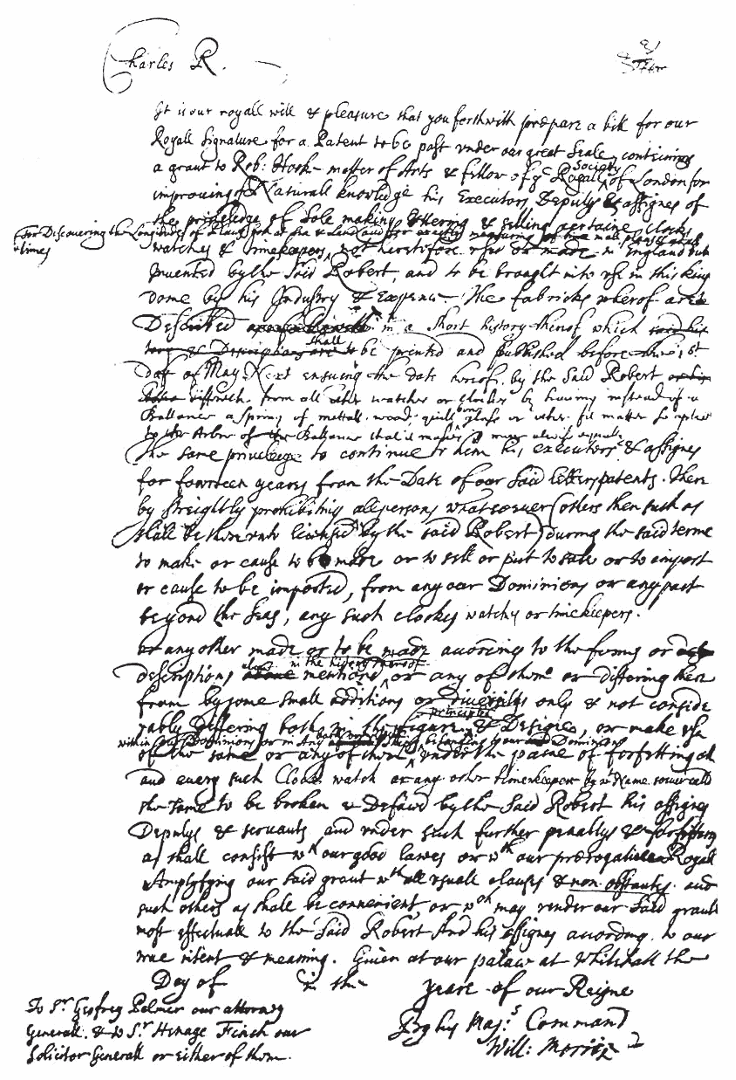 Charles R.
It is our royall will & pleasure that you forthwith prepare a bill for our
Royall Signature for a Patent to be past under our great Seale containing
a grant to Rob: Hook master of Arts & fellow of ye Royall Society of London for
improving of Naturall knowledge his Executors Deputys & assignes of
the priviledge of Sole making uttering & selling certaine Clocks
For Discovering the Longitude of places at sea & Land
times
watches & timekeepers not heretofore usd or made in England but
Invented by the Said Robert, and to be brought into use in this King
dome by his Industry & Expence. The fabricks wherof are
Described in a short history therof which
shall be printed and published before the 1st
Day of May Next ensuing the Date hereof, by the Said Robert
different from all other watches or clocks by having instead of a
Ballance a Spring of mettall, wood, quill, bone, glass or other fit matter
to the Arbor of the Ballance
the same priviledge to continue to him his executors & assignes
for fowreteen yeares from the Date of our Said letters patents. Then
by streightly prohibiting all persons whatsoever (others then such as
shall be therunto licensed by the said Robert) during the said terme
to make or cause to be made or to sell or put to sale or to import
or cause to be imported, from any our Dominions or any part
beyond the Seas, any such clockes watchs or timekeepers.
or any other made or to be made according to the forms or
descriptions mentioned in the history therof or any of them or differing here
from by some small additions or diversitys only & not conside
rably differing both in the figure principles & Designe, or make use
within our Dominions or in Any
of the same or any of them under the paine of forfetting all
and every such Clock watch or any other timekeeper by wt Name soever calld
the same to be broken & Defacd by the Said Robert his assignes
Deputys & servants and under such further penaltys & forfitures
as shall consist wth our good lawes or wth our prerogative Royall
Amplyfying our said grant wth all usuall clauses & non obstantes. and
such others as shall be convenient or wch may render our Said grant
most effectuall to the Said Robert And his assignes according to our
true intent & meaning. Given at our palace at Whitehall the
Day of in the yeare of our Reigne
To Sr. Geofrey Palmer our attorney
Generall. & to Sr Henage Finch our
Solicitor Generall or either of them.
By his Maj:s Command
Will: Morice